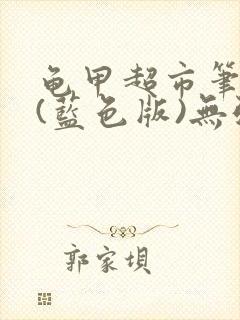 龟甲超市筆
(藍色版)無
郭家埧